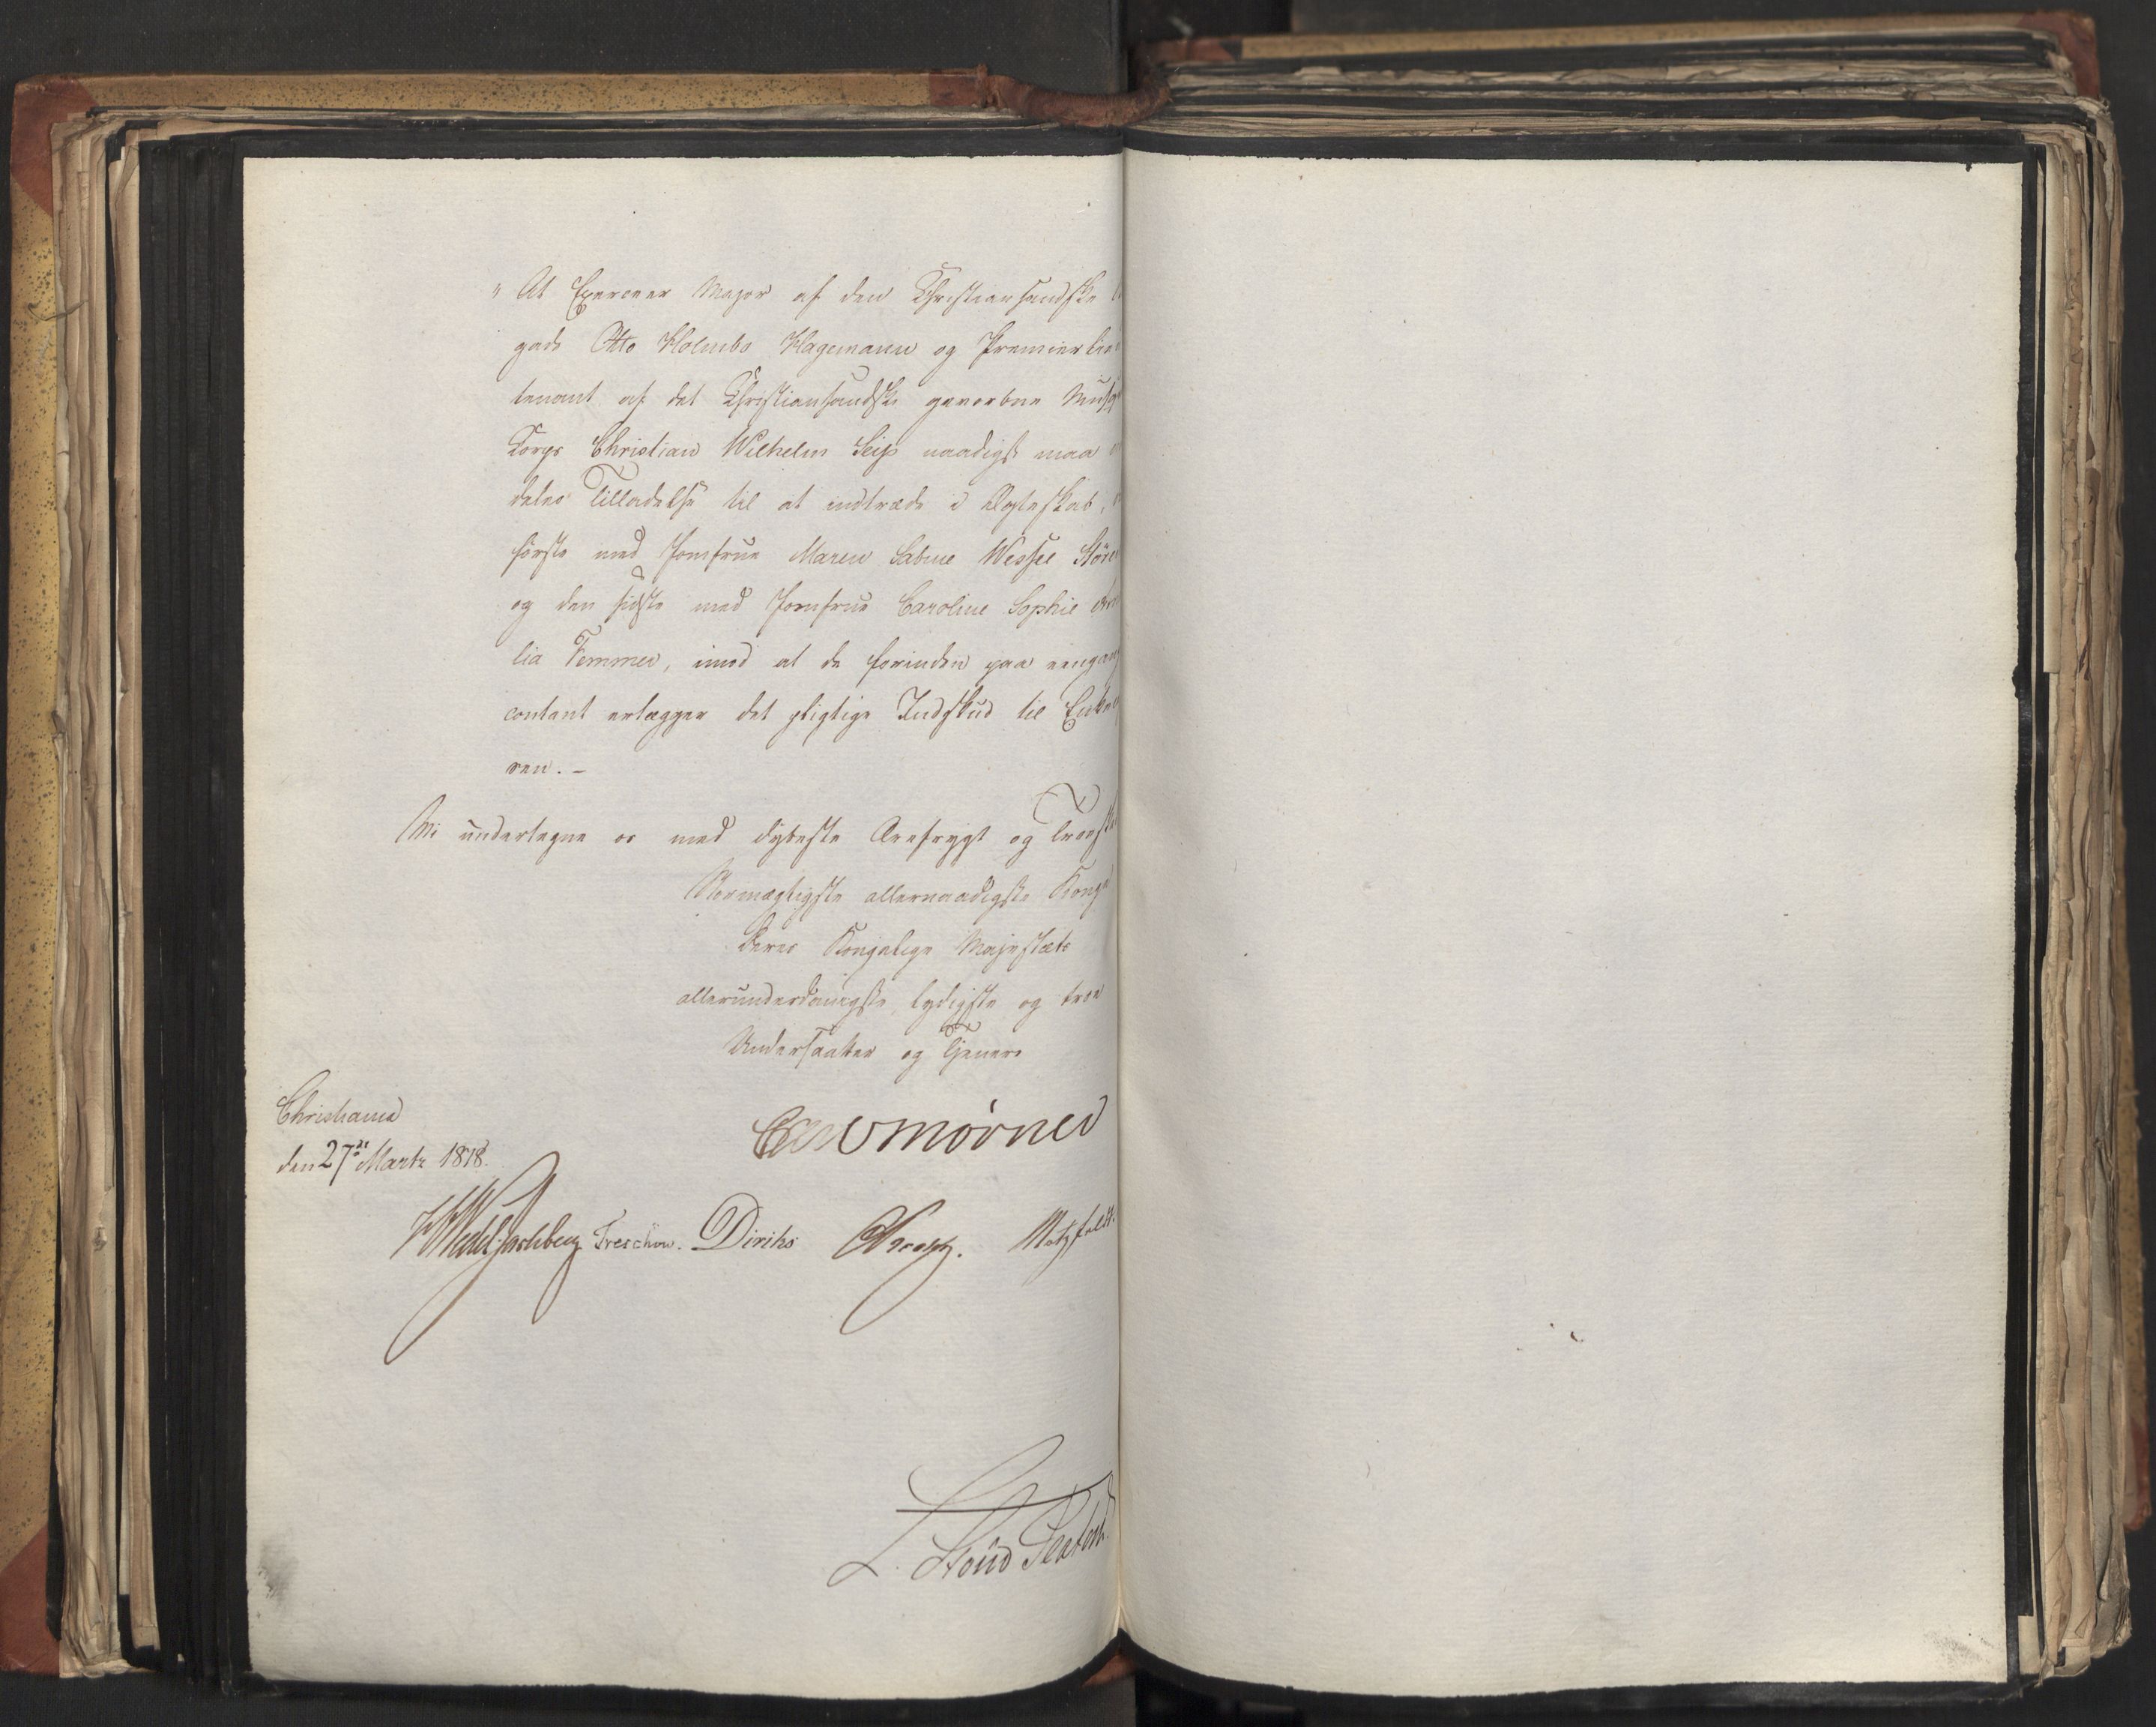 "At Exerceer Major af den Christiansandske
gade Otto Holmboe Hagemann og Premierlieu
tenant af det Christiansandske gevorbne Musq
Corps Christian Wilhelm Seip naadigst maa
deles Tilladelse til at indtræde i Ægteskab,
første med Jomfrue Maren Sabine Wessel
og den sidste med Jomfrue Caroline Sophie
lia Temmer, imod at de forinden paa eengang
contant erlægger det pligtige Indskud til
sen. –
Vi undertegne os med dybeste Ærefrygt og
Stormægtigste allernaadigste Konge
Deres Kongelige Majestæts
allerunderdanigste, lydigste og troe
Undersaatter og Tjenere
Christiania
den 27de Marts 1818.
Mörner
Wedel Jarlsberg Treschow. Diriks Krogh. Motzfeldt.
L. Stoud Platou